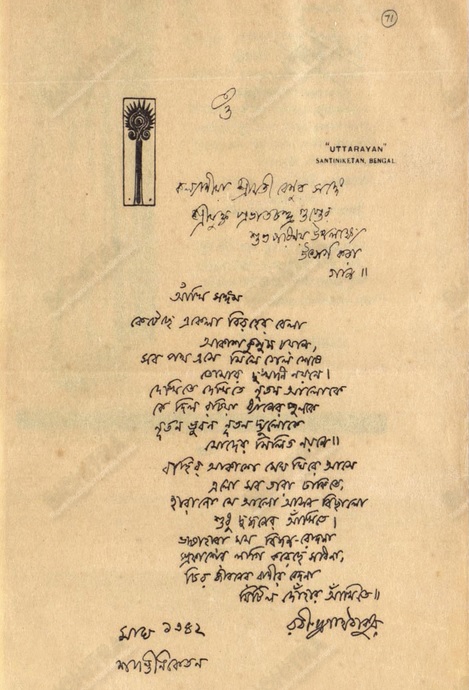 71
ওঁ
"UTTARAYAN"
SANTINIKETAN, BENGAL
কল্যাণীয়া শ্রীমতী রেণুর সঙ্গে
শ্রীযুক্ত প্রভাতচন্দ্র গুপ্তের
শুভ পরিণয় উপলক্ষ্যে
উৎসর্গ করা
গান॥
কেটেছে একেলা বিরহের বেলা
আকাশকুসুম চয়নে,
সব পথ এসে মিলে গেল শেষে
তোমার দুখানি নয়নে।
দেখিতে দেখিতে নূতন আলোকে
কে দিল রচিয়া ধ্যানের পুলকে
নূতন ভুবন নূতন দ্যুলোকে
মোদের মিলিত নয়নে॥
বাহির আকাশে মেঘ ঘিরে আসে
এল সব তারা ঢাকিতে,
হারানো সে আলো আসন বিছালো
শুধু দুজনের আঁখিতে।
ভাষাহারা মম বিজন-রোদনা
প্রকাশের লাগি করেছে সাধনা,
চির জীবনের বাণীর বেদনা
মিটিল দোঁহার আঁখিতে॥
রবীন্দ্রনাথ ঠাকুর
মাঘ ১৩৪২
শান্তিনিকেতন